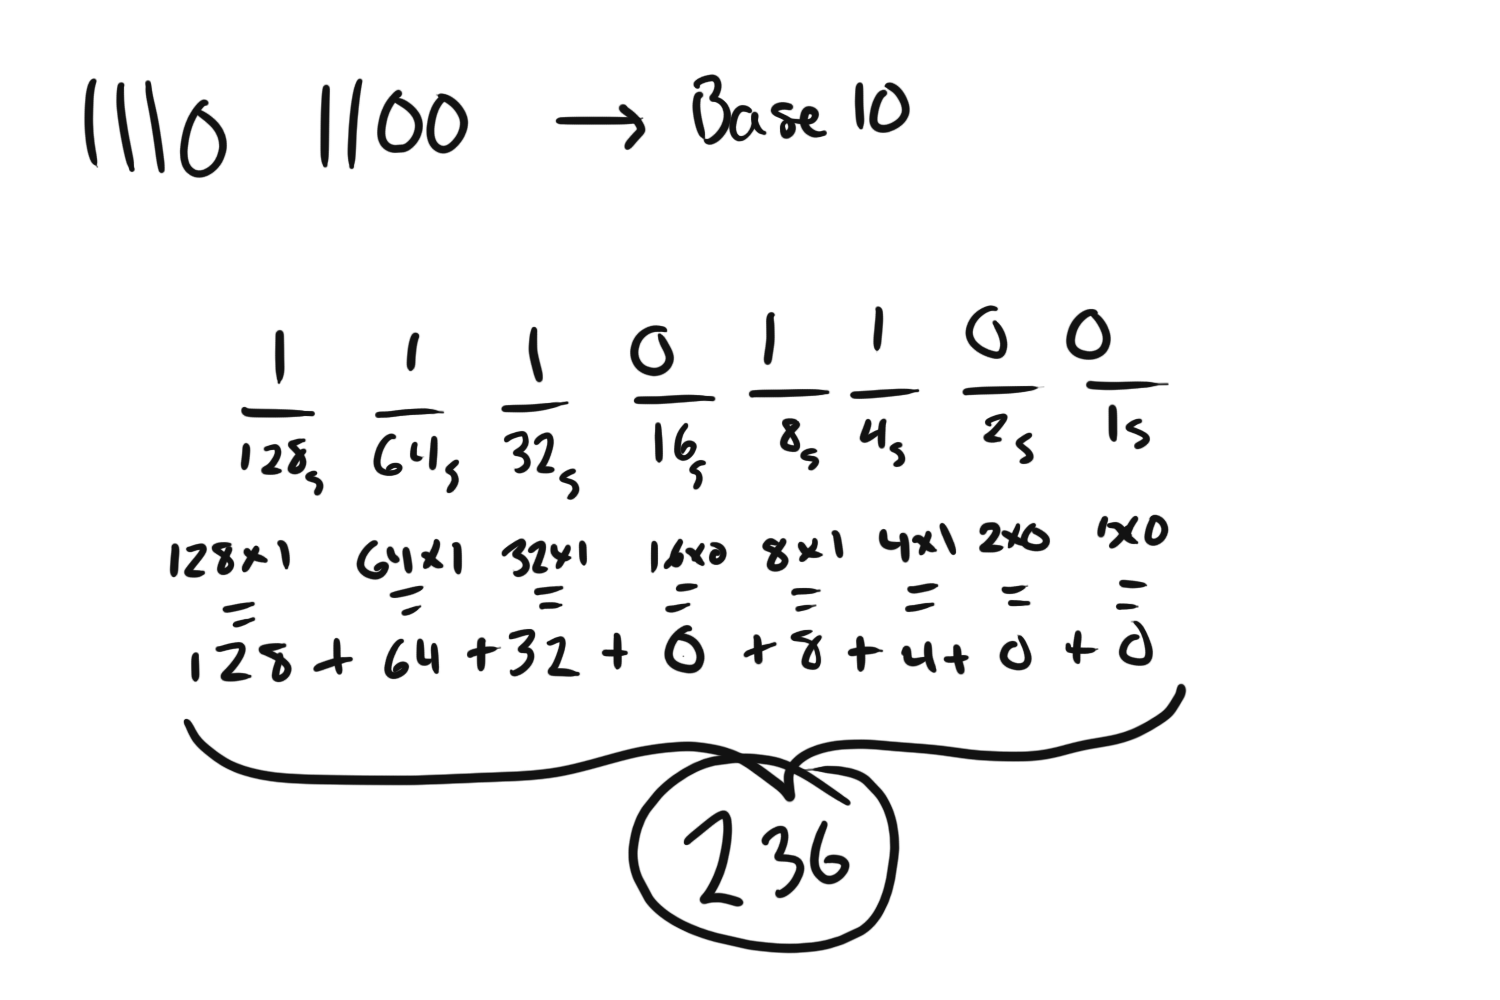 1110 1100 → Base 10
1 1 1 0 1 1 0 0
128s 64s 32s 16s 8s 4s 2s 1s
128x1 64x1 32x1 16x0 8x1 4x1 2x0 1x0
= = = = = = = =
128 + 64 + 32 + 0 + 8 + 4 + 0 + 0
236